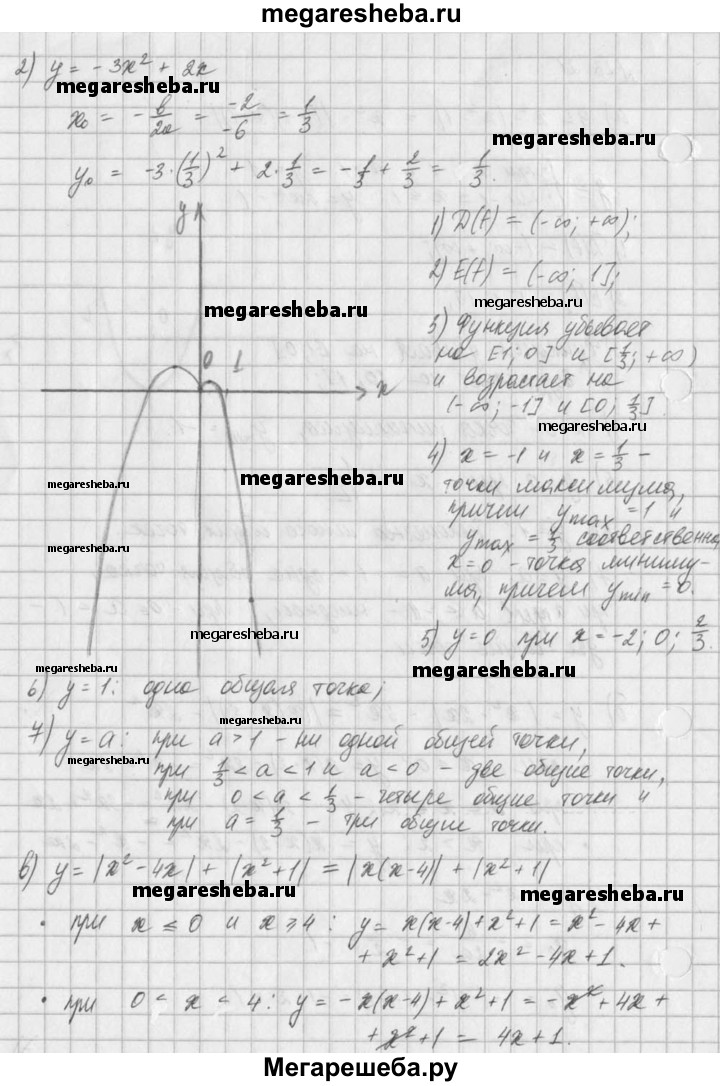 megaresheba.ru
2) y = -3x² + 2x
megaresheba.ru
x₀ = -b/2a = -2/-6 = 1/3
megaresheba.ru
y₀ = -3·(1/3)² + 2·1/3 = -1/3 + 2/3 = 1/3.
y
1) D(f) = (-∞; +∞);
2) E(f) = (-∞; 1];
megaresheba.ru
megaresheba.ru
3) Функция убывает
на [1; 0] и [1/3; +∞)
и возрастает на
(-∞; -1] и [0; 1/3].
0 1
x
megaresheba.ru
4) x = -1 и x = 1/3 -
точки максимума,
причем y max = 1 и
y max = 1/3 соответственно,
x=0 - точка миниму-
ма, причем y min = 0.
megaresheba.ru
megaresheba.ru
megaresheba.ru
megaresheba.ru
5) y=0 при x = -2; 0; 2/3.
megaresheba.ru
megaresheba.ru
6) y=1: одна общая точка;
megaresheba.ru
7) y=a: при a>1 - ни одной общей точки,
megaresheba.ru
при 1/3 < a < 1 и a < 0 - две общие точки,
при 0 < a < 1/3 - четыре общие точки и
при a = 1/3 - три общие точки.
в) y = |x² - 4x| + |x² + 1| = |x(x-4)| + |x² + 1|
megaresheba.ru
megaresheba.ru
• при x ≤ 0 и x ≥ 4: y = x(x-4) + x² + 1 = x² - 4x +
+ x² + 1 = 2x² - 4x + 1.
• при 0 < x < 4: y = -x(x-4) + x² + 1 = -x² + 4x +
+ x² + 1 = 4x + 1.
Мегарешеба.ру